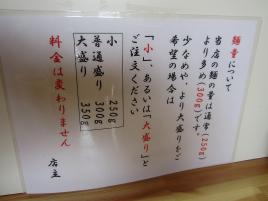 麺量について
当店の麺の量は通常(250g)
より多め(300g)です。
少なめや、より大盛りをご
希望の場合は
「小」、あるいは「大盛り」と
ご注文ください
小 250g
普通盛り 300g
大盛り 350g
料金は変わりません
店主